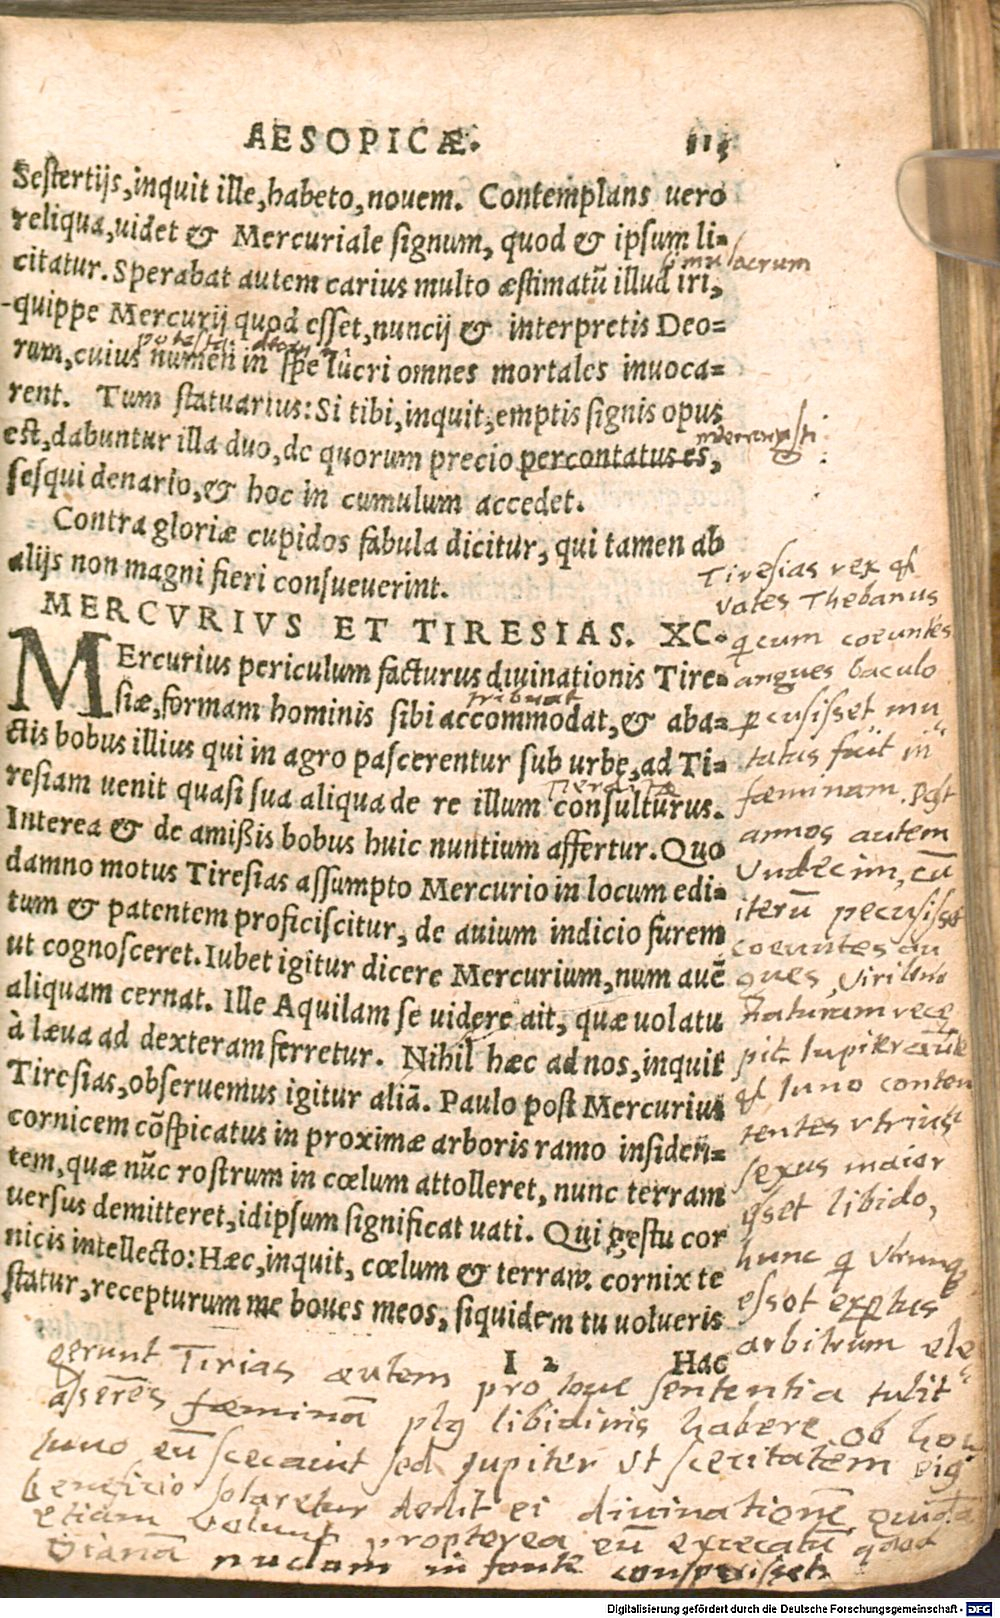 AESOPICÆ. 115
Sestertijs, inquit ille, habeto, nouem. Contemplans uero
reliqua, uidet & Mercuriale signum, quod & ipsum li-
simulacrum
citatur. Sperabat autem carius multo æstimatū illud iri,
quippe Mercurij quod esset, nuncij & interpretis Deo-
rum, cuius numen in spe lucri omnes mortales inuoca-
rent. Tum statuarius: Si tibi, inquit, emptis signis opus
est, dabuntur illa duo, de quorum precio percontatus es,
sesqui denario, & hoc in cumulum accedet.
Contra gloriæ cupidos fabula dicitur, qui tamen ab
alijs non magni fieri consueuerint.
MERCVRIVS ET TIRESIAS. XC.
MErcurius periculum facturus diuinationis Tire-
tribuat
siæ, formam hominis sibi accommodat, & aba-
ctis bobus illius qui in agro pascerentur sub urbe, ad Ti-
resiam uenit quasi sua aliqua de re illum consulturus.
Interea & de amißis bobus huic nuntium affertur. Quo
damno motus Tiresias assumpto Mercurio in locum edi-
tum & patentem proficiscitur, de auium indicio furem
ut cognosceret. Iubet igitur dicere Mercurium, num auē
aliquam cernat. Ille Aquilam se uidere ait, quæ uolatu
à læua ad dexteram ferretur. Nihil hæc ad nos, inquit
Tiresias, obseruemus igitur aliā. Paulo post Mercurius
cornicem cōspicatus in proximæ arboris ramo insiden-
tem, quæ nūc rostrum in cœlum attolleret, nunc terram
uersus demitteret, id ipsum significat uati. Qui gestu cor
nicis intellecto: Hæc, inquit, cœlum & terram cornix te
statur, recepturum me boues meos, siquidem tu uolueris
I 2 Hac
Tiresias rex et
vates Thebanus
q cum coeuntes
angues baculo
pcusisset mu
tatus fuit in
fœminam. post
annos autem
Vndecim, cū
iterū pecusisset
coeuntes an
gues, Virilem
naturam rece
pit. Iupiter autē
et Iuno conten
tentes vtrius
sexus maior
esset libido,
hunc q vtrunq
esset exptus
arbitrum ele
gerunt Tirias autem pro Ioue sententia tulit
asserēs fœminā plq libidinis habere ob hoc
Iuno eū scecauit sed Jupiter Vt sceritatem eig
beneficio solaretur dedit ei diuinationē quidā
etiam volunt propterea eū excecatū quod
Dianā nudam in fonte conspexisset